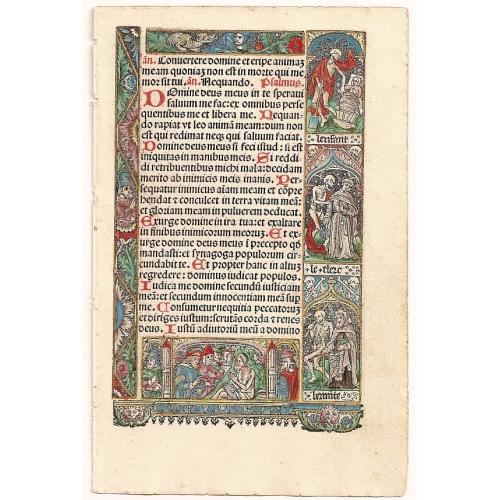 añ. Conuertere domine et eripe animaꝫ
meam quoniaꝫ non est in morte qui me
mor sit tui. añ. Nequando. Psalmus.
Domine deus meus in te speraui
saluum me fac: ex omnibus perse
quentibus me et libera me. Nequan-
do rapiat vt leo animā meam: dum non
est qui redimat neqꝫ qui saluum faciat.
Domine deus meus si feci istud: si est
iniquitas in manibus meis. Si reddi-
di retribuentibus michi mala: decidam
merito ab inimicis meis inanis. Per-
sequatur inimicus aīam meam et cōpre
hendat & conculcet in terra vitam meā:
et gloriam meam in puluerem deducat.
Exurge domine in ira tua: et exaltare
in finibus inimicorum meoruꝫ. Et ex-
urge domine deus meus ī precepto qō
mandasti: et synagoga populorum cir-
cundabit te. Et propter hanc in altuꝫ
regredere: dominus iudicat populos.
Iudica me domine secundū iusticiam
meā: et secundum innocentiam meā sup
me. Consumetur nequitia peccatoruꝫ
et diriges iustum: scrutās corda & renes
deus. Iustū adiutoriū meū a domino
lenfant
le tiers
lermite